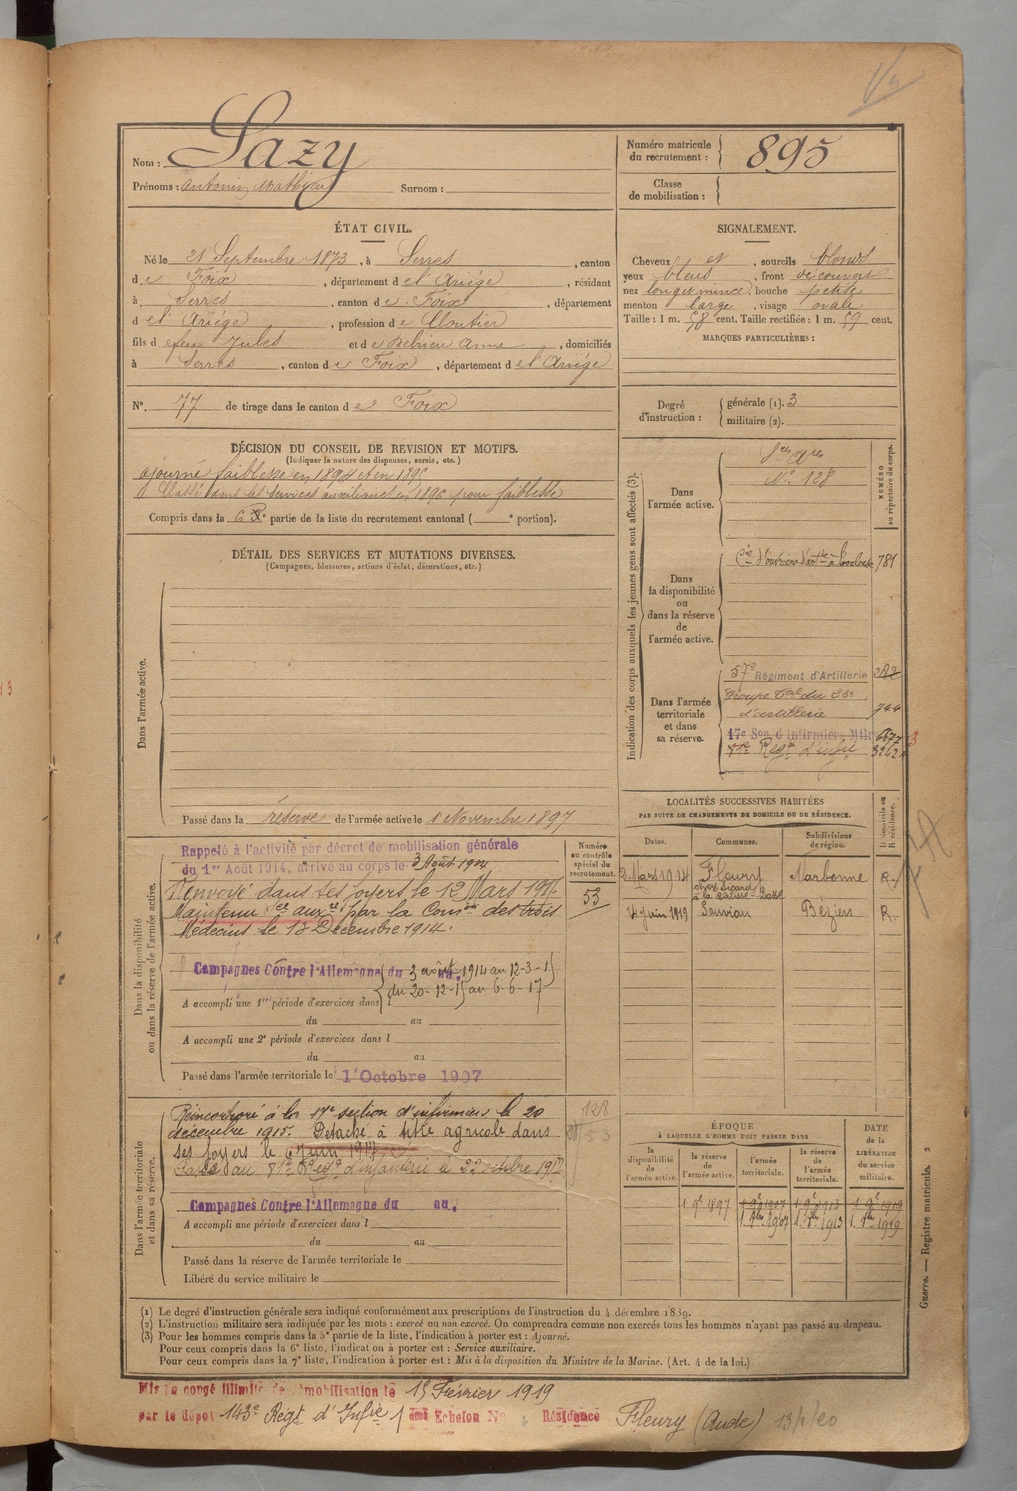 Nom : Lazy
Prénoms : Antonin Mathieu Surnom :
Numéro matricule du recrutement : 895
Classe de mobilisation :
ÉTAT CIVIL.
Né le 21 Septembre 1873, à Serres, canton
de Foix, département de l'Ariége, résidant
à Serres, canton de Foix, département
de l'Ariége, profession de Cloutier
fils de feu Jules et de Anne, domiciliés
à Serres, canton de Foix, département de l'Ariége
No. 77 de tirage dans le canton de Foix
SIGNALEMENT.
Cheveux et, sourcils blonds
yeux bleus, front découvert
nez long et mince, bouche petite
menton large, visage ovale
Taille : 1 m. 58 cent. Taille rectifiée : 1 m. 59 cent.
MARQUES PARTICULIÈRES :
Degré d'instruction : générale (1). 3
militaire (2).
DÉCISION DU CONSEIL DE REVISION ET MOTIFS.
(Indiquer la nature des dispenses, sursis, etc.)
ajourné faiblesse en 1894 et en 1895
Classé dans les services auxiliaires en 1896 pour faiblesse
Compris dans la 6e partie de la liste du recrutement cantonal ( e portion).
DÉTAIL DES SERVICES ET MUTATIONS DIVERSES.
(Campagnes, blessures, actions d'éclat, décorations, etc.)
Dans l'armée active.
Passé dans la réserve de l'armée active le 1 Novembre 1897
Indication des corps auxquels les jeunes gens sont affectés (3).
NUMÉRO au répertoire du corps.
Dans l'armée active.
No 128
Dans la disponibilité ou dans la réserve de l'armée active.
Cie d'ouvriers d'artie à Toulouse 781
Dans l'armée territoriale et dans sa réserve.
57e Régiment d'Artillerie 282
Groupe Tal du
d'artillerie 744
17e Son d'Infirmiers Milres
81e Regt d'infie
LOCALITÉS SUCCESSIVES HABITÉES
PAR SUITE DE CHANGEMENTS DE DOMICILE OU DE RÉSIDENCE.
Dates. Communes. Subdivisions de région. D. domicile ou R. résidence.
2 Mars 1914 Fleury Narbonne R.
chez Sicard
14 Juin 1919 Servian Béziers R.
Dans la disponibilité ou dans la réserve de l'armée active.
Numéro au contrôle spécial du recrutement.
53
Rappelé à l'activité par décret de mobilisation générale
du 1er Août 1914, arrivé au corps le 3 Août 1914
Renvoyé dans ses foyers le 12 Mars 1915.
Maintenu sce auxre par la Comon des trois
Médecins le 18 Décembre 1914.
Campagnes Contre l'Allemagne du 3 août 1914 au 12-3-15
du 20-12-15 au 6-6-17
A accompli une 1re période d'exercices dans l
du au
A accompli une 2e période d'exercices dans l
du au
Passé dans l'armée territoriale le 1er Octobre 1907
Dans l'armée territoriale et dans sa réserve.
Réincorporé à la 17e section d'infirmiers le 20
décembre 1915. Détaché à titre agricole dans
ses foyers le 6 juin 1917
Passé au 81e Regt d'infanterie le 22 octobre 1917
128
53
Campagnes Contre l'Allemagne du au
A accompli une période d'exercices dans l
du au
Passé dans la réserve de l'armée territoriale le
Libéré du service militaire le
ÉPOQUE
À LAQUELLE L'HOMME DOIT PASSER DANS
la disponibilité de l'armée active. la réserve de l'armée active. l'armée territoriale. la réserve de l'armée territoriale.
DATE de la LIBÉRATION du service militaire.
1 9e 1897 1 9e 1907 1 9e 1913 1 9e 1919
1 8bre 1907 1 8bre 1913 1 8bre 1919
(1) Le degré d'instruction générale sera indiqué conformément aux prescriptions de l'instruction du 4 décembre 1889.
(2) L'instruction militaire sera indiquée par les mots : exercé ou non exercé. On comprendra comme non exercés tous les hommes n'ayant pas passé au drapeau.
(3) Pour les hommes compris dans la 5e partie de la liste, l'indication à porter est : Ajourné.
Pour ceux compris dans la 6e liste, l'indication à porter est : Service auxiliaire.
Pour ceux compris dans la 7e liste, l'indication à porter est : Mis à la disposition du Ministre de la Marine. (Art. 4 de la loi.)
Guerre. — Registre matricule. 2
Mis en congé illimité de démobilisation le 15 Février 1919
par le dépôt 143e Régt d'Infie / ème Echelon No Résidence Fleury (Aude)